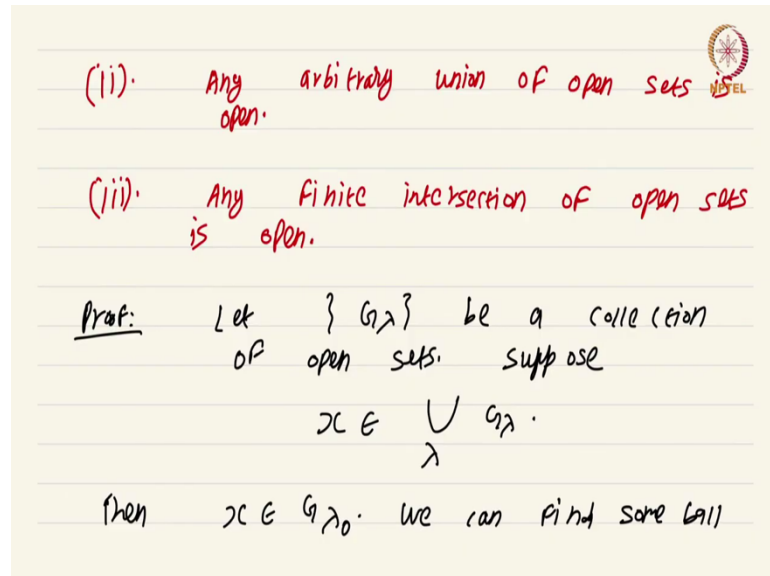 (ii). Any arbitrary union of open sets is
open.
NPTEL
(iii). Any finite intersection of open sets
is open.
Proof: Let } Gλ} be a collection
of open sets. Suppose
x ∈ ⋃ Gλ.
λ
Then x ∈ Gλ₀. We can find some ball